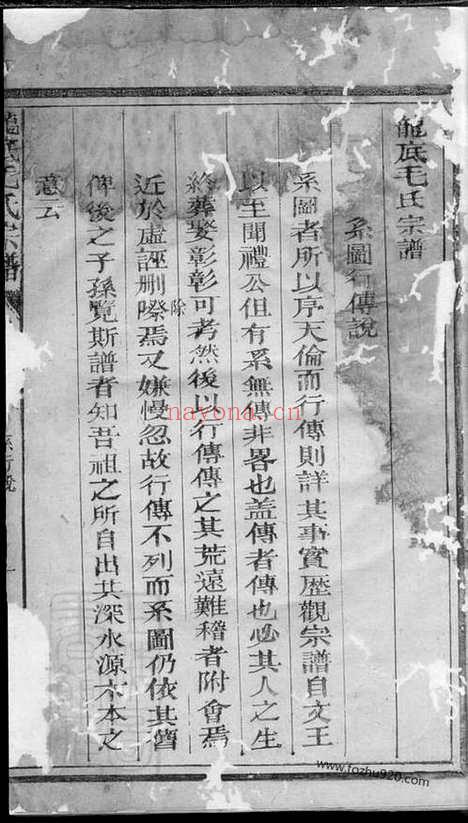 龍底毛氏宗譜
系圖行傳說
系圖者所以序天倫而行傳則詳其事實歷觀宗譜自文王
以至聞禮公但有系無傳非畧也盖傳者傳也必其人之生
終葬娶彰彰可考然後以行傳傳之其荒遠難稽者附會焉
近於虛誣刪除嘐焉又嫌慢忽故行傳不列而系圖仍依其舊
俾後之子孫覽斯譜者知吾祖之所自出其深水源木本之
意云
底毛氏宗譜
系行說
nayona.cn
www.fozhu920.com